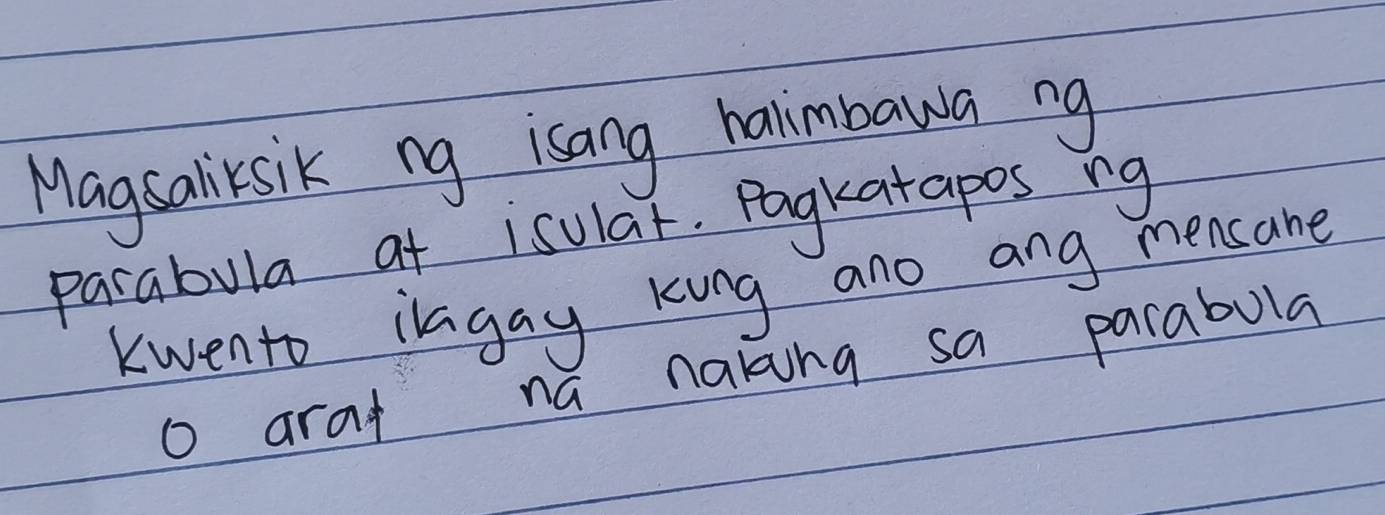 Magsaliksik ng isang halimbawa ng
parabula at isulat. Pagkatapos ng
kwento ilagay kung ano ang mensahe
o aral na nakuha sa parabula